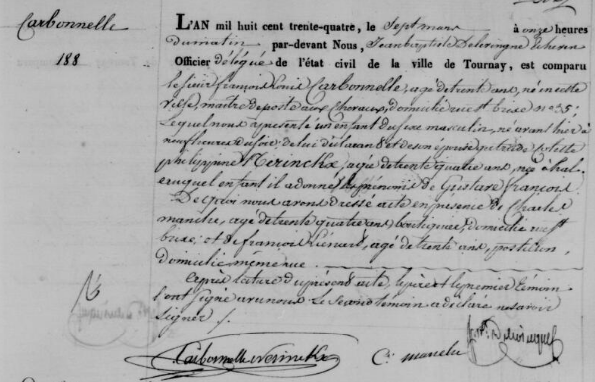 Carbonnelle
188
L'AN mil huit cent trente-quatre, le sept mars à onze heures
du matin par-devant Nous, Jean baptiste
Officier délégué de l'état civil de la ville de Tournay, est comparu
le sieur françois Louis Carbonnelle, agé de trente ans, né en cette
ville, maitre de poste aux chevaux, domicilié rue st brixe no 5;
Lequel nous a présenté un enfant du sexe masculin, né avant hier à
neuf heures du soir, de lui déclarant et de son épouse
philippine Nerinckx, agée de trente quatre ans, née à hal
auquel enfant il a donné les prénoms de Gustave françois.
De quoi nous avons dressé acte en présence de Charles
manche, agé de trente quatre ans, boutiquier, domicilié rue st
brixe; et de françois Liénard, agé de trente ans, postillon,
domicilié même rue
Après lecture du présent acte, le père et le premier témoin
l'ont signé avec nous. Le second témoin a déclaré ne savoir
signer /.
Carbonnelle Nerinckx
C. manche